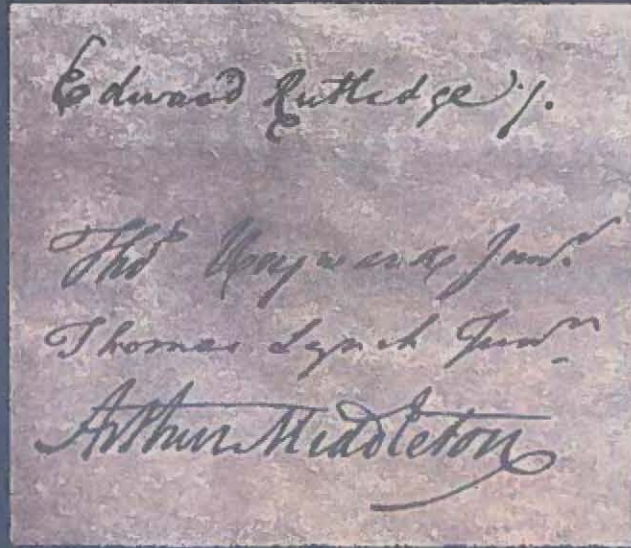 Edward Rutledge /.
Thos Heyward Junr.
Thomas Lynch Junr
Arthur Middleton